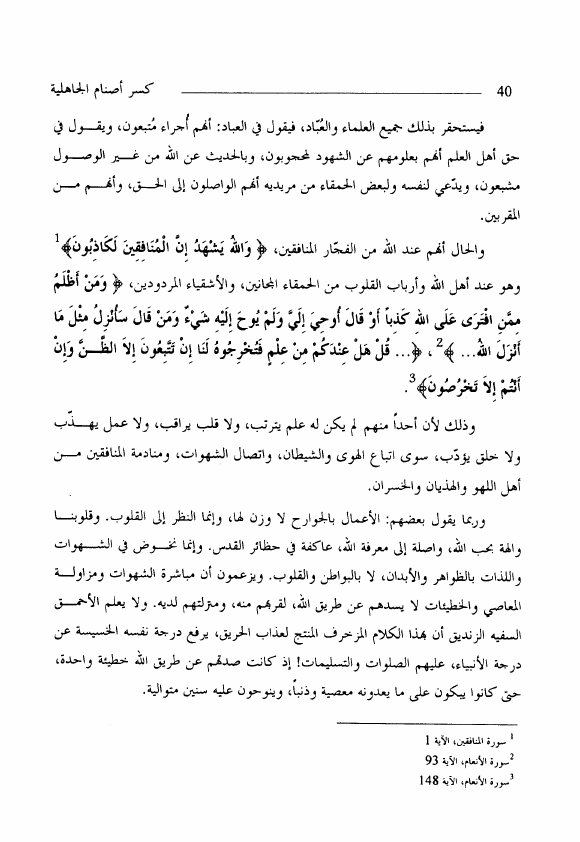 40 كسر أصنام الجاهلية
فيستحقر بذلك جميع العلماء والعُبّاد، فيقول في العباد: أنهم أُجراء مُتبعون، ويقـــول في
حق أهل العلم أنهم بعلومهم عن الشهود لمحجوبون، وبالحديث عن الله من غـــير الوصـــول
مشبعون، ويدّعي لنفسه ولبعض الحمقاء من مريديه أنهم الواصلون إلى الحـــق، وأنهـــم مـــن
المقربين.
والحال أنهم عند الله من الفجّار المنافقين، ﴿ وَاللهُ يَشْهَدُ إِنَّ الْمُنَافِقِينَ لَكَاذِبُونَ﴾1
وهو عند أهل الله وأرباب القلوب من الحمقاء المجانين، والأشقياء المردودين، ﴿ وَمَنْ أَظْلَمُ
مِمَّنِ افْتَرَى عَلَى اللهِ كَذِباً أَوْ قَالَ أُوحِيَ إِلَيَّ وَلَمْ يُوحَ إِلَيْهِ شَيْءٌ وَمَنْ قَالَ سَأُنْزِلُ مِثْلَ مَا
أَنْزَلَ اللهُ... ﴾2 ، ﴿... قُلْ هَلْ عِنْدَكُمْ مِنْ عِلْمٍ فَتُخْرِجُوهُ لَنَا إِنْ تَتَّبِعُونَ إِلاَّ الظَّـنَّ وَإِنْ
أَنْتُمْ إِلاَّ تَخْرُصُونَ﴾3.
وذلك لأن أحداً منهم لم يكن له علم يترتب، ولا قلب يراقب، ولا عمل يهـــذّب
ولا خلق يؤدّب، سوى اتباع الهوى والشيطان، واتصال الشهوات، ومنادمة المنافقين مـــن
أهل اللهو والهذيان والخسران.
وربما يقول بعضهم: الأعمال بالجوارح لا وزن لها، وإنما النظر إلى القلوب. وقلوبنـــا
والهة بحب الله، واصلة إلى معرفة الله، عاكفة في حظائر القدس. وإنما نخـــوض في الشـــهوات
واللذات بالظواهر والأبدان، لا بالبواطن والقلوب. ويزعمون أن مباشرة الشهوات ومزاولـــة
المعاصي والخطيئات لا يسدهم عن طريق الله، لقربهم منه، ومنزلتهم لديه. ولا يعلم الأحمـــق
السفيه الزنديق أن بهذا الكلام المزخرف المنتج لعذاب الحريق، يرفع درجة نفسه الخسيسة عن
درجة الأنبياء، عليهم الصلوات والتسليمات! إذ كانت صدتهم عن طريق الله خطيئة واحدة،
حتى كانوا يبكون على ما يعدونه معصية وذنباً، وينوحون عليه سنين متوالية.
1 سورة المنافقين، الآية 1
2 سورة الأنعام، الآية 93
3 سورة الأنعام، الآية 148